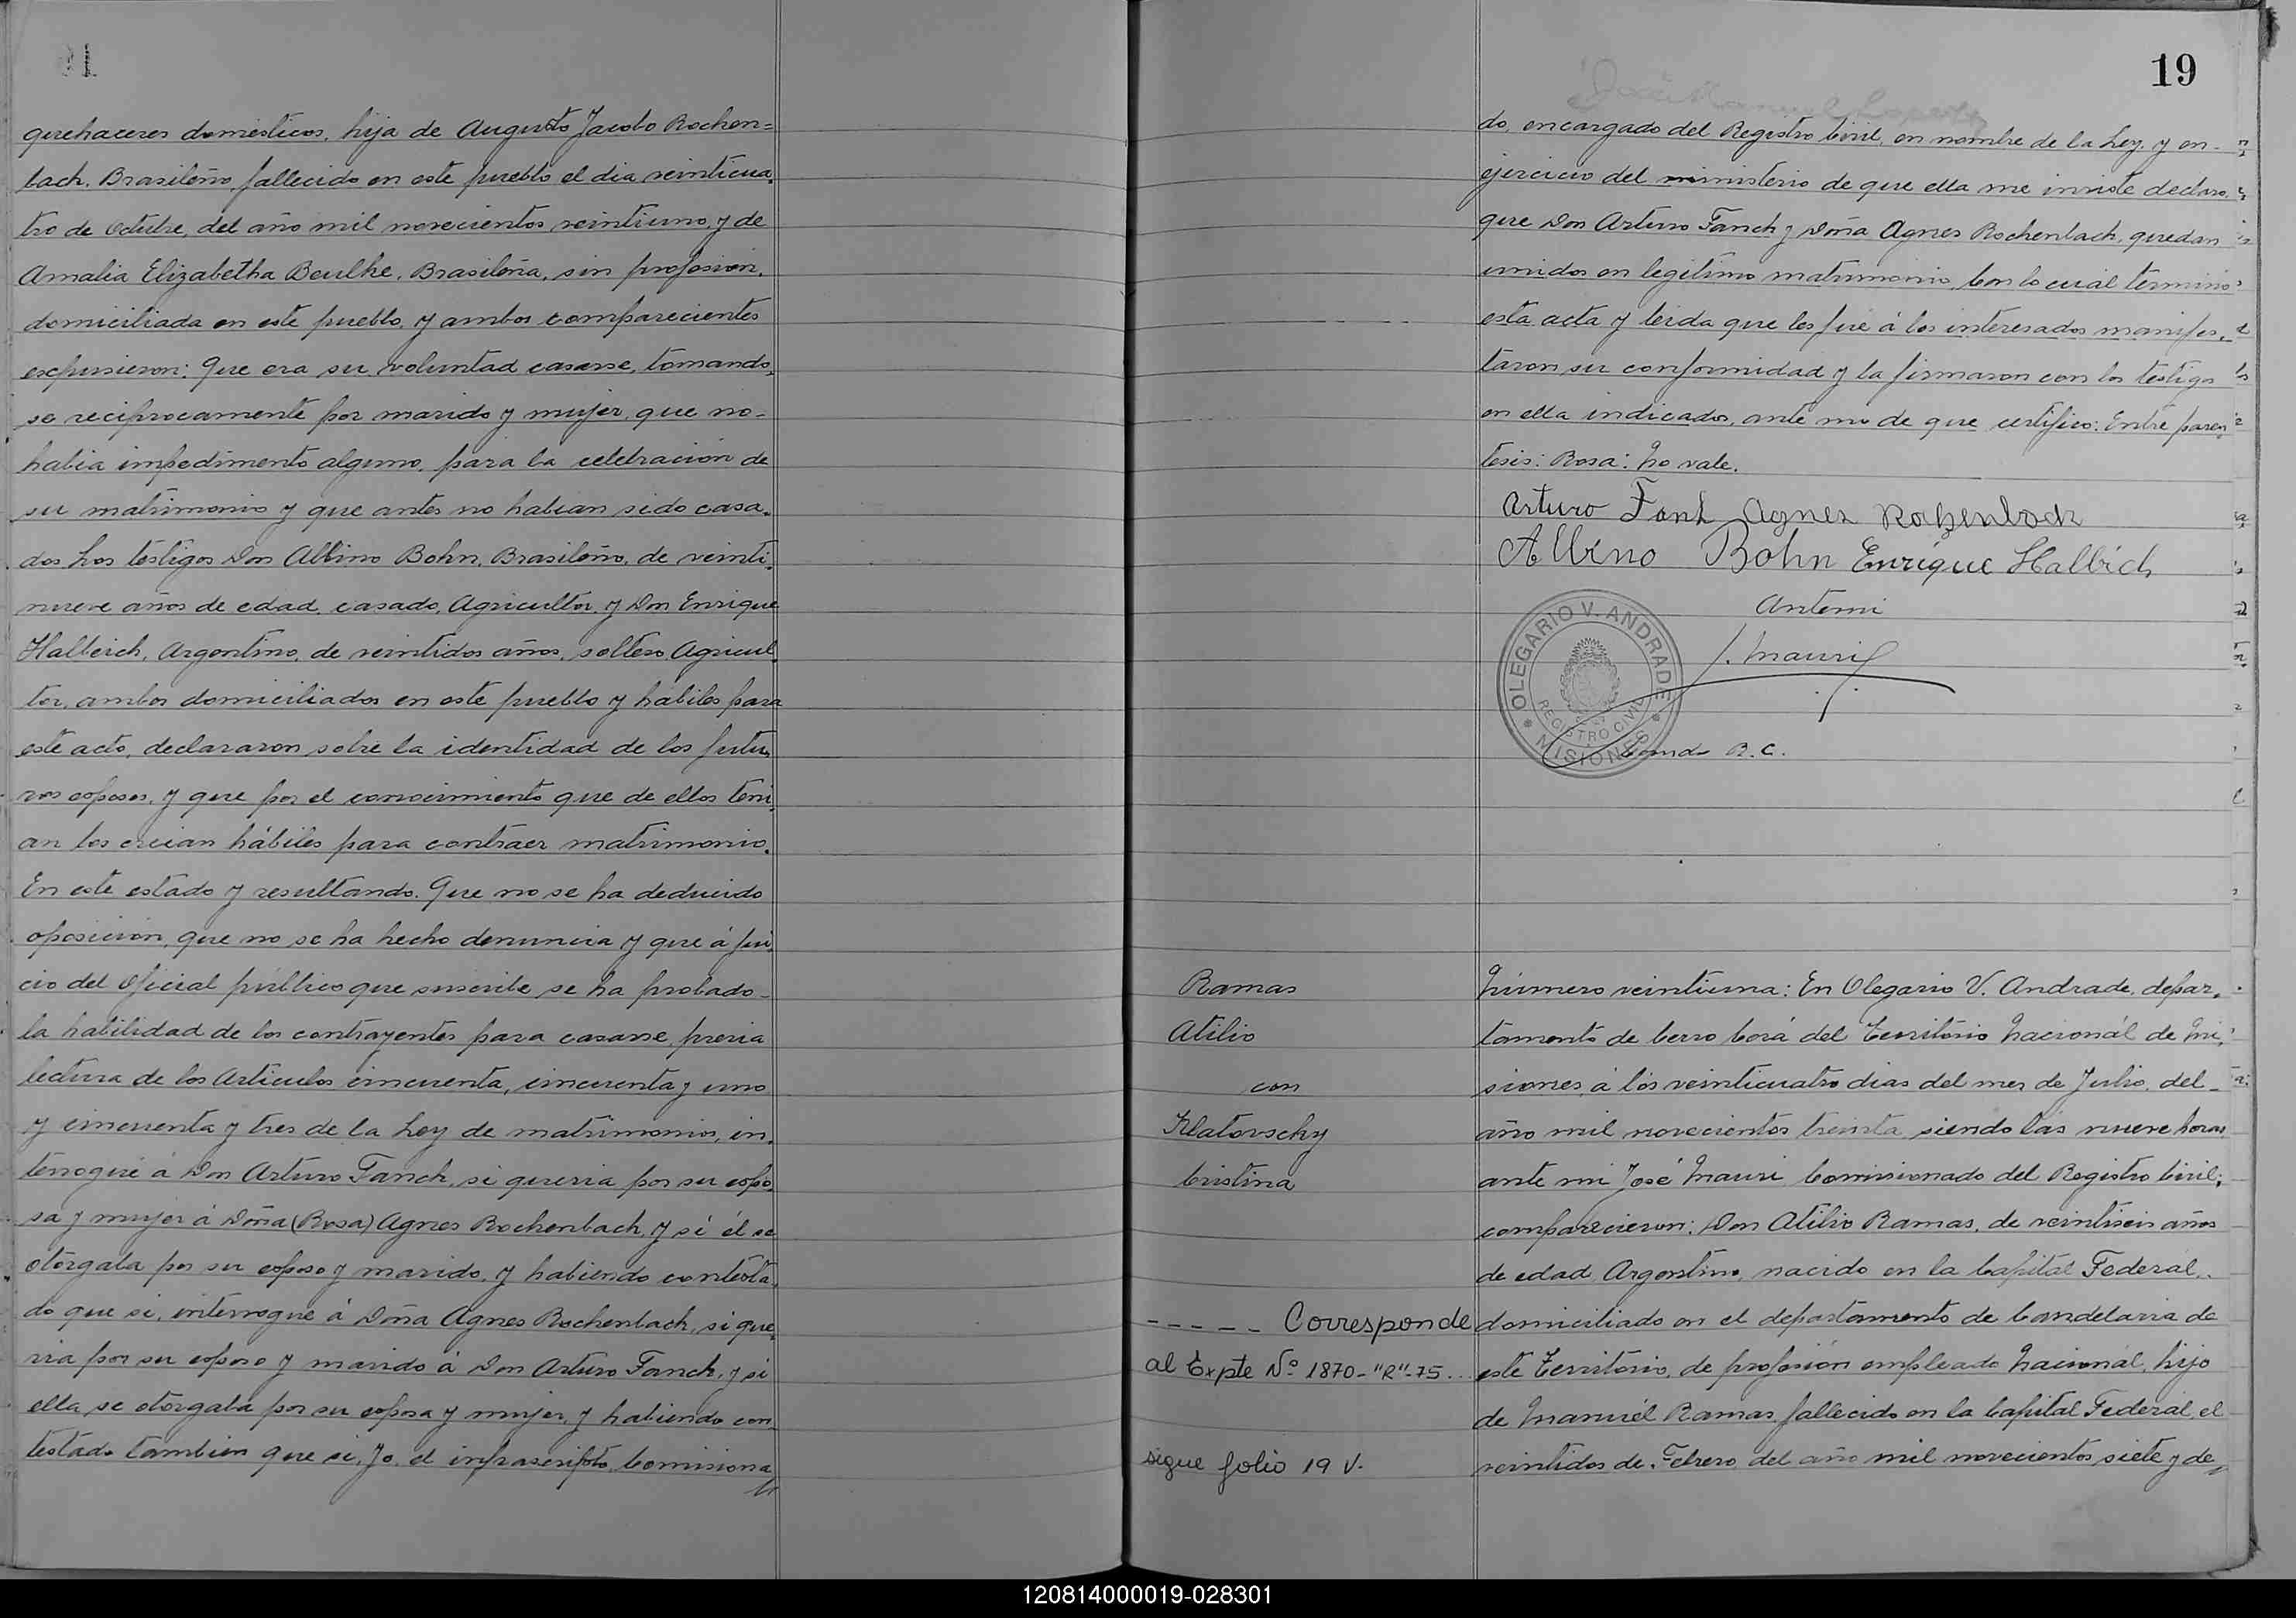 quehaceres domésticos, hija de Augusto Jacobo Rochen=
bach, Brasileño, fallecido en este pueblo el dia veinticua
tro de Octubre, del año mil novecientos veintiuno, y de
Amalia Elizabetha Beulke, Brasileña, sin profesion,
domiciliada en este pueblo, y ambos comparecientes
expusieron: Que era su voluntad casarse, tomando
se reciprocamente por marido y mujer, que no-
habia impedimento alguno, para la celebración de
su matrimonio y que antes no habian sido casa.
dos Los testigos Don Albino Bohn, Brasileño, de veinti
nueve años de edad, casado, Agricultor, y Don Enrique
Halbeich, Argentino, de veintidos años, soltero, Agricul
tor, ambos domiciliados en este pueblo y hábiles para
este acto, declararon sobre la identidad de los futu
ros esposos, y que por el conocimiento que de ellos teni
an los creian hábiles para contraer matrimonio.
En este estado y resultando. Que no se ha deducido
oposición, que no se ha hecho denuncia y que á jui
cio del Oficial público que suscribe se ha probado-
la habilidad de los contrayentes para casarse, previa
lectura de los Articulos cincuenta, cincuenta y uno
y cincuenta y tres de la Ley de matrimonio, in.
terrogué á Don Arturo Fanch, si queria por su espo
sa y mujer á Doña (Rosa) Agnes Rochenbach, y si él se
otorgaba por su esposo y marido, y habiendo contesta
do que si, interrogué á Doña Agnes Rochenbach, si que
ria por su esposo y marido á Don Arturo Fanch, y si
ella se otorgaba por su esposa y mujer, y habiendo con
testado tambien que si, Yo, el infrascripto, Comisiona
19
do, encargado del Registro Civil, en nombre de la Ley, y en-
ejercicio del ministerio de que ella me inviste declaro,
que Don Arturo Fanch y Doña Agnes Rochenbach, quedan
unidos en legitimo matrimonio, Con lo cual terminó
esta acta y leida que les fué á los interesados manifes.
taron su conformidad y la firmaron con los testigos
en ella indicados, ante mi de que certifico: Entre paren
tesis: Rosa: No vale.
Arturo Fanh Agnes Rochenbach
Albino Bohn Enrique Halbich
Antemi
J. Mauri
OLEGARIO V. ANDRADE
REGISTRO CIVIL
* MISIONES *
Comdo R.C.
Ramas
Atilio
con
Klatovschy
Cristina
Número veintiuna: En Olegario V. Andrade, depar.
tamento de Cerro Corá del Território Nacionál de Mi
siones, á los veinticuatro dias del mes de Julio, del-
año mil novecientos treinta, siendo las nueve horas,
ante mi José Mauri Comisionado del Registro Civil;
comparecieron: Don Atilio Ramas, de veintiseis años
de edad, Argentino, nacido en la Capital Federál,
domiciliado en el departamento de Candelaria de
este Território, de profesión empleado Nacionál, hijo
de Manuél Ramas, fallecido en la Capital Federál, el
veintidos de Febrero, del año mil novecientos siete y de
----- Corresponde
al Expte Nº 1870-"R"-75..
sigue folio 19 V.
120814000019-028301